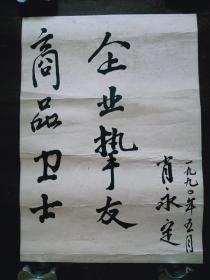 商品卫士
企业挚友
肖永定
一九九〇年五月